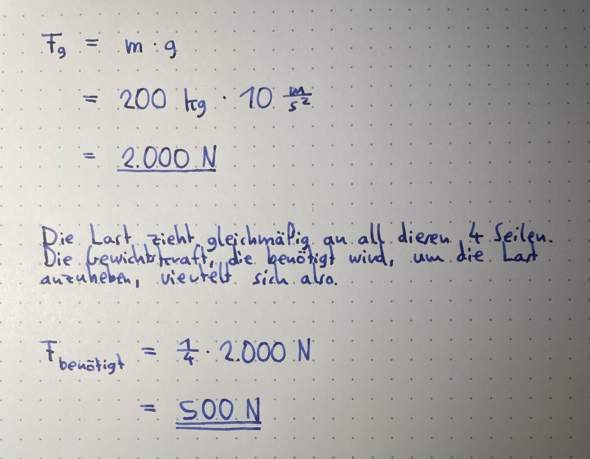 Fg = m · g
= 200 kg · 10 m/s²
= 2.000 N
Die Last zieht gleichmäßig an all diesen 4 Seilen.
Die Gewichtskraft, die benötigt wird, um die Last
anzuheben, viertelt sich also.
F benötigt = 1/4 · 2.000 N
= 500 N